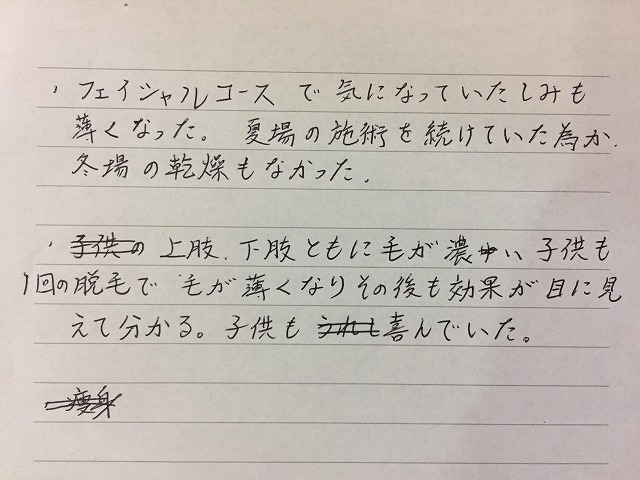 ・フェイシャルコースで気になっていたしみも
薄くなった。夏場の施術を続けていた為か、
冬場の乾燥もなかった。
・子供の上肢、下肢ともに毛が濃い、子供も
1回の脱毛で毛が薄くなりその後も効果が目に見
えて分かる。子供もうれし喜んでいた。
痩身